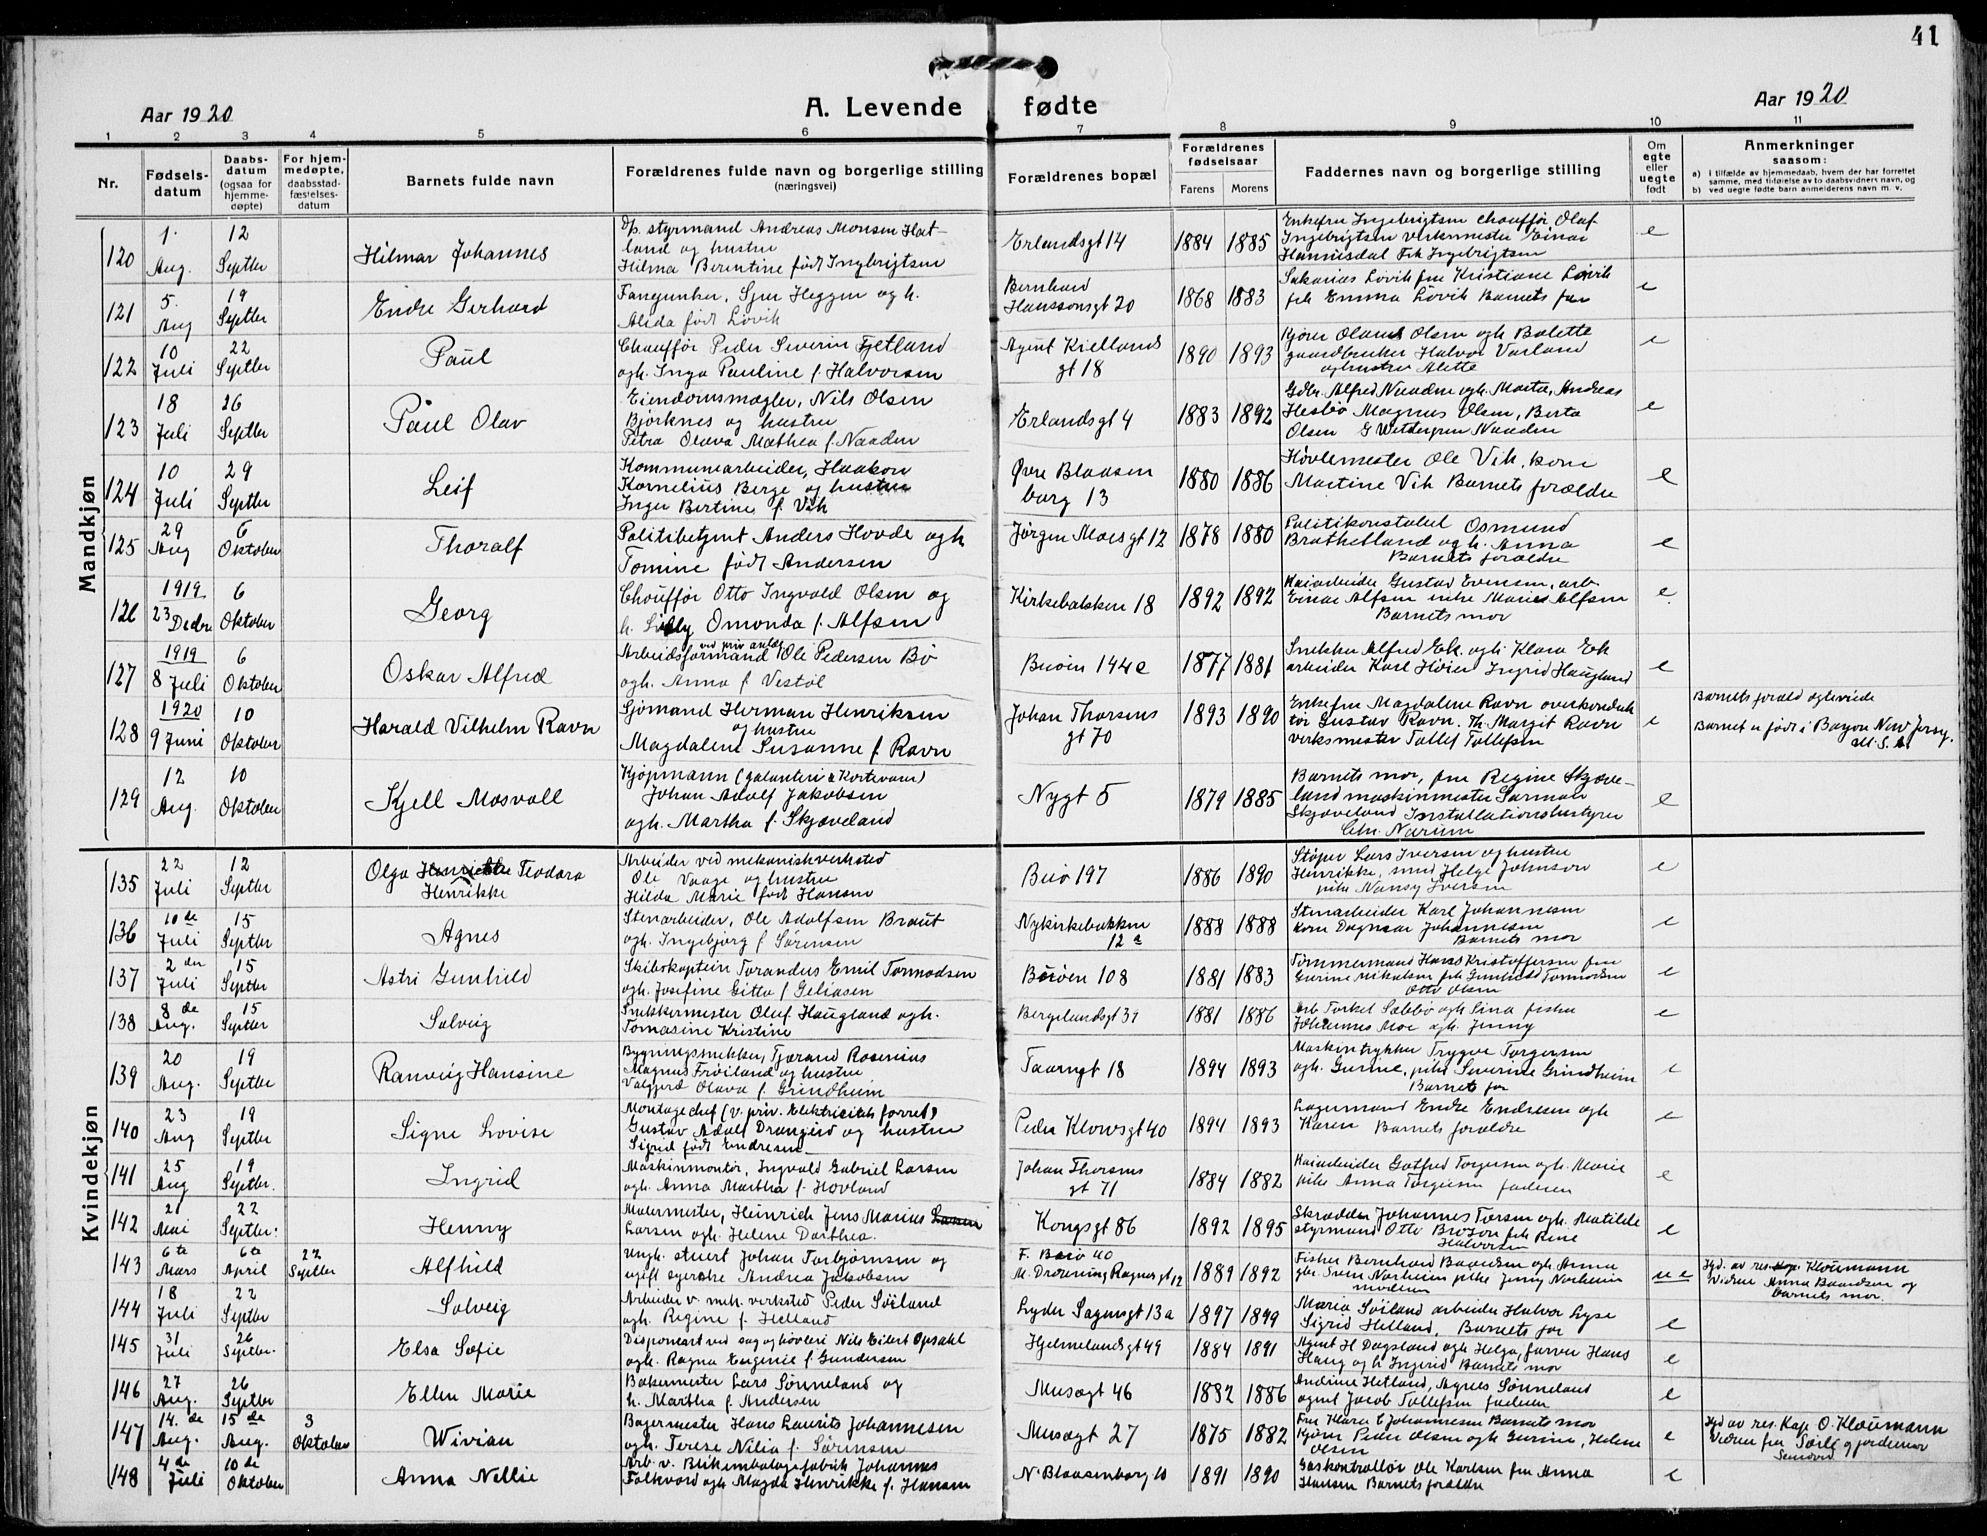 41
Aar 1920
A. Levende fødte
Aar 1920
1 2 3 4 5 6 7 8 9 10 11
Nr.
Fødsels-datum
Daabs-datum (ogsaa for hjemme-døpte)
For hjem-medøpte, daabsstad-fæstelses-datum
Barnets fulde navn
Forældrenes fulde navn og borgerlige stilling (næringsvei)
Forældrenes bopæl
Forældrenes fødselsaar
Farens Morens
Faddernes navn og borgerlige stilling
Om egte eller uegte født
Anmerkninger
saasom:
a) i tilfælde av hjemmedaab, hvem der har forrettet samme, med tilføielse av to daabsvidners navn, og
b) ved uegte fødte barn anmelderens navn m. v.
Mandkjøn
120 1. Aug. 12 Septbr Hilmar Johannes
D/s. styrmand Andreas Monsen Hat-
land og hustru
Hilma Berentine født Ingebrigtsen
Erlandsgt 14 1884 1885
Enkefru Ingebrigtsen chauffør Olaf
Ingebrigtsen verkmester Einar
Hannesdal Frk Ingebrigtsen
e
121 5. Aug 19 Septbr Endre Gerhard
Sjur Heggen og h.
Alida født Lövik
Bernhard
Hanssonsgt 20 1868 1883
Sakarias Lövik fru Kristiane Lövik
frk Emma Lövik Barnets far
e
122 10 Juli 22 Septbr Paul
Chauffør Peder Severin Fjetland
og h. Inga Pauline f. Halvorsen
Agent Kiellands
gt 18 1890 1893
Kjörer Olaus Olsen og h Bolette
gaardbruker Halvor Varland
og hustru Alette
e
123 18 Juli 26 Septbr Paul Olav
Eiendomsmægler, Nils Olsen
Bjørknes og hustru
Petra Olava Mathea f. Naaden
Erlandsgt 4 1883 1892
Gdbr. Alfred Naaden og h. Marta, Andreas
Hesbö Magnus Olsen, Berta
Olsen G Wetdergren Naaden
e
124 10 Juli 29 Septbr Leif
Kommunearbeider, Haakon
Kornelius Berge og hustru
Inger Bertine f. Vik
Øvre Blaasen
borg 13 1880 1886
Hövlemester Ole Vik, kone
Martine Vik Barnets forældre
e
125 29 Aug 6 Oktober Thoralf
Politibetjent Anders Hovde og h
Tomine født Andersen
Jörgen Moesgt 12 1878 1880
Politikonstabel Osmund
Brathetland og h. Anna
Barnets forældre
e
126 1919 23 Decbr 6 Oktober Georg
Chauffør Otto Ingvald Olsen og
h. Lilly Omonda f. Alfsen
Kirkebakken 18 1892 1892
Kaiarbeider Gustav Evensen, arb
Einar Alfsen enke Marie Alfsen
Barnets mor
e
127 1919 8 Juli 6 Oktober Oskar Alfred
Arbeidsformand ved priv anlæg Ole Pedersen Bö
og h. Anna f. Vestöl
Buöen 144 c 1877 1881
Snekker Alfred Ek og h. Klara Ek
arbeider Karl Höier Ingrid Haugland
e
128 1920 9 Juni 10 Oktober Harald Vilhelm Ravn
Sjømand Herman Henriksen
og hustru
Magdalene Susanne f. Ravn
Johan Thorsens
gt 70 1893 1890
Enkefru Magdalene Ravn overkonduk
tör Gustav Ravn. Th. Margit Ravn
verksmester Tollef Tollefsen
e
Barnets foræld
Barnet er født i New Jersy.
U.S.A.
129 12 Aug. 10 Oktober Kjell Mosvoll
Kjøpmann (galanteri & Kortevarer)
Johan Adolf Jakobsen
og h. Martha f. Skjæveland
Nygt 5 1879 1885
Barnets mor, fru Regine Skjæve-
land maskinmester Sarman
Skjæveland Installationsbestyrer
Chr. Nærum
e
Kvindekjøn
135 22 Juli 12 Septbr Olga Henrikke Teodora
Henrikke
Arbeider ved mekanisk verksted
Ole Vaage og hustru
Hilda Marie født Hansen
Buö 197 1886 1890
Støper Lars Iversen og hustru
Henrikke, smed Helge Johnson
pike Nansy Iversen
e
136 10 de Juli 15 Septbr Agnes
Stenarbeider, Ole Adolfsen Braut
og h. Ingebjørg f. Sørensen
Nykirkebakken
12 a 1888 1888
Stenarbeider Karl Johannesen
kone Dagmar Johannesen
Barnets mor
e
137 2 den Juli 15 Septbr Astri Gunhild
Skibskaptein Torandus Emil Tormodsen
og h. Josefine Gitta f. Geliasen
Buöen 108 1881 1883
Tömmermand Hans Kristoffersen fru
Gurine Mikalsen frk Gunhild Tormodsen
Otto Olsen
e
138 8 de Aug. 15 Septbr Solveig
Snekkermester Oluf Haugland og h.
Tomasine Kristine
Bergelandsgt 31 1881 1886
Arb Torkel Sæbbö og h Sina fisker
Johannes Moe og h. Jenny
e
139 20 Aug. 19 Septbr Ranveig Hansine
Bygningssnekker, Tjerand Rosenius
Magnus Fröiland og hustru
Valgjerd Olava f. Grindheim
Taarngt 18 1894 1893
Maskintrykker Trygve Torgersen
og h. Gurine, pike Severine Grindheim
Barnets far
e
140 23 Aug 19 Septbr Signe Lovise
Montage chef (v. priv. Elektricitets forret)
Gustav Adolf Drangeid og hustru
Sigrid født Endresen
Peder Klowsgt 40 1894 1893
Lagermand Endre Endresen og h
Karen Barnets forældre
e
141 25 Aug 19 Septbr. Ingrid
Maskinmontör, Ingvald Gabriel Larsen
og h. Anna Martha f. Hovland
Johan Thorsens
gt 71 1884 1882
Kaiarbeider Gotfred Torgersen og h. Marie
pike Anna Torgersen faderen
e
142 21 Mai 22 Septbr. Henny
Malermester, Heinrich Jens Marius Larsen
Larsen og h. Helene Dorthea.
Kongsgt 86 1892 1895
Skrædder Johannes Torsen og h. Matilde
styrmand Otto frk Rene
Halvorsen
e
143 6te Mars 6te April 22 Septbr Alfhild
Ungk. stuert Johan Torbjørnsen og
ugift syerske Andrea Jakobsen
F. Buö 40
M. Dronning Ragnas gt 12 1889 1892
Fisker Bernhard Baardsen og h Anna
gbr. Sven Norheim pike Jenny Norheim
moderen
u e
Hjd. av res. Kap. Kloumann
Vidner Anna Baardsen og
barnets mor.
144 18 Juli 22 Septbr Solveig
Arbeider v. mek. verksted Peder Söiland
og h. Regine f. Helland
Lyder Sagensgt 13 a 1897 1899
Maria Söiland arbeider Halvor Lyse
Sigrid Helland, Barnets far
e
145 31 Juli 26 Septbr. Elsa Sofie
Disponent ved sag og høvleri Nils Eilert Opsahl
og h. Ragna Eugenie f. Gundersen
Hjelmelandsgt 49 1884 1891
Agent H Dagsland og h Helga, farver Hans
Haug og h Ingrid Barnets mor
e
146 27 Aug. 26 Septbr Ellen Marie
Bakermester Lars Sønneland og
h. Martha f. Andersen
Musægt 46 1882 1886
Andrine Hetland, Agnes Sønneland
agent Jacob Tollefsen faderen
e
147 14. de Aug. 15 de Aug. 3 Oktober Wivian
Bagermester Hans Laurits Johannesen
og h. Terese Nilia f. Sørensen
Musægt 27 1875 1882
Fru Klara C Johannesen Barnets mor
Kjører Peder Olsen og h Gurine, Helene
Olsen
e
Hjd av res. Kap. O. Kloumann
Vidner fru gjordemor
148 4 de Juli 10 de Oktober Anna Nellie
Arb. v. Blikemballagefabrik Johannes
Falkvard og h Magda Henrikke f. Hansen
N. Blaasenborg 10 1891 1890
Gaskontrollør Ole Karlsen fru Anna
Hansen Barnets forældre
e